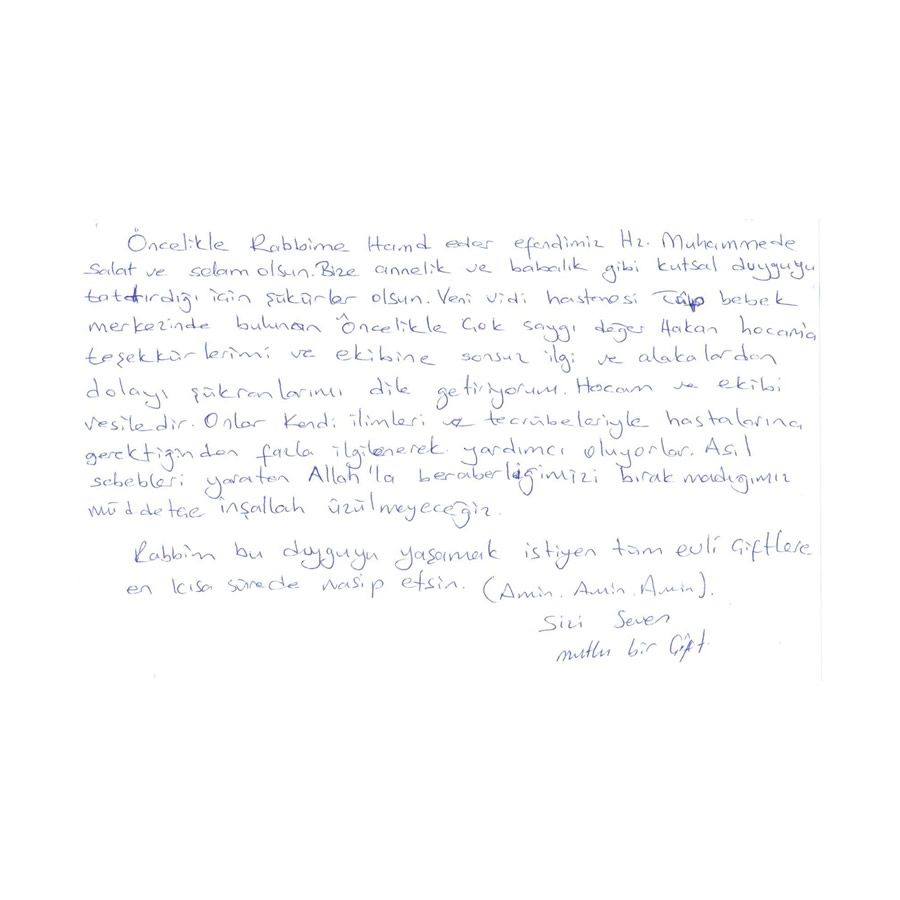 Öncelikle Rabbime Hamd eder efendimiz Hz. Muhammede
salat ve selam olsun. Bize annelik ve babalık gibi kutsal duyguyu
tatdırdığı için şükürler olsun. Veni vidi hastenesi Tüp bebek
merkezinde bulunan Öncelikle Çok saygı değer Hakan hocama
teşekkürlerimi ve ekibine sonsuz ilgi ve alakalardan
dolayı şükranlarımı dile getiriyorum. Hocam ve ekibi
vesiledir. Onlar Kendi ilimleri ve tecrübeleriyle hastalarına
gerektiğinden fazla ilgilenerek yardımcı oluyorlar. Asıl
sebebleri yaraten Allah'la beraberliğimizi bırakmadığımız
müddetçe inşallah üzülmeyeceğiz.
Rabbim bu duyguyu yaşamak istiyen tüm evli çiftlere
en kısa sürede nasip etsin. (Amin. Amin. Amin).
Sizi Seven
mutlu bir Çift.